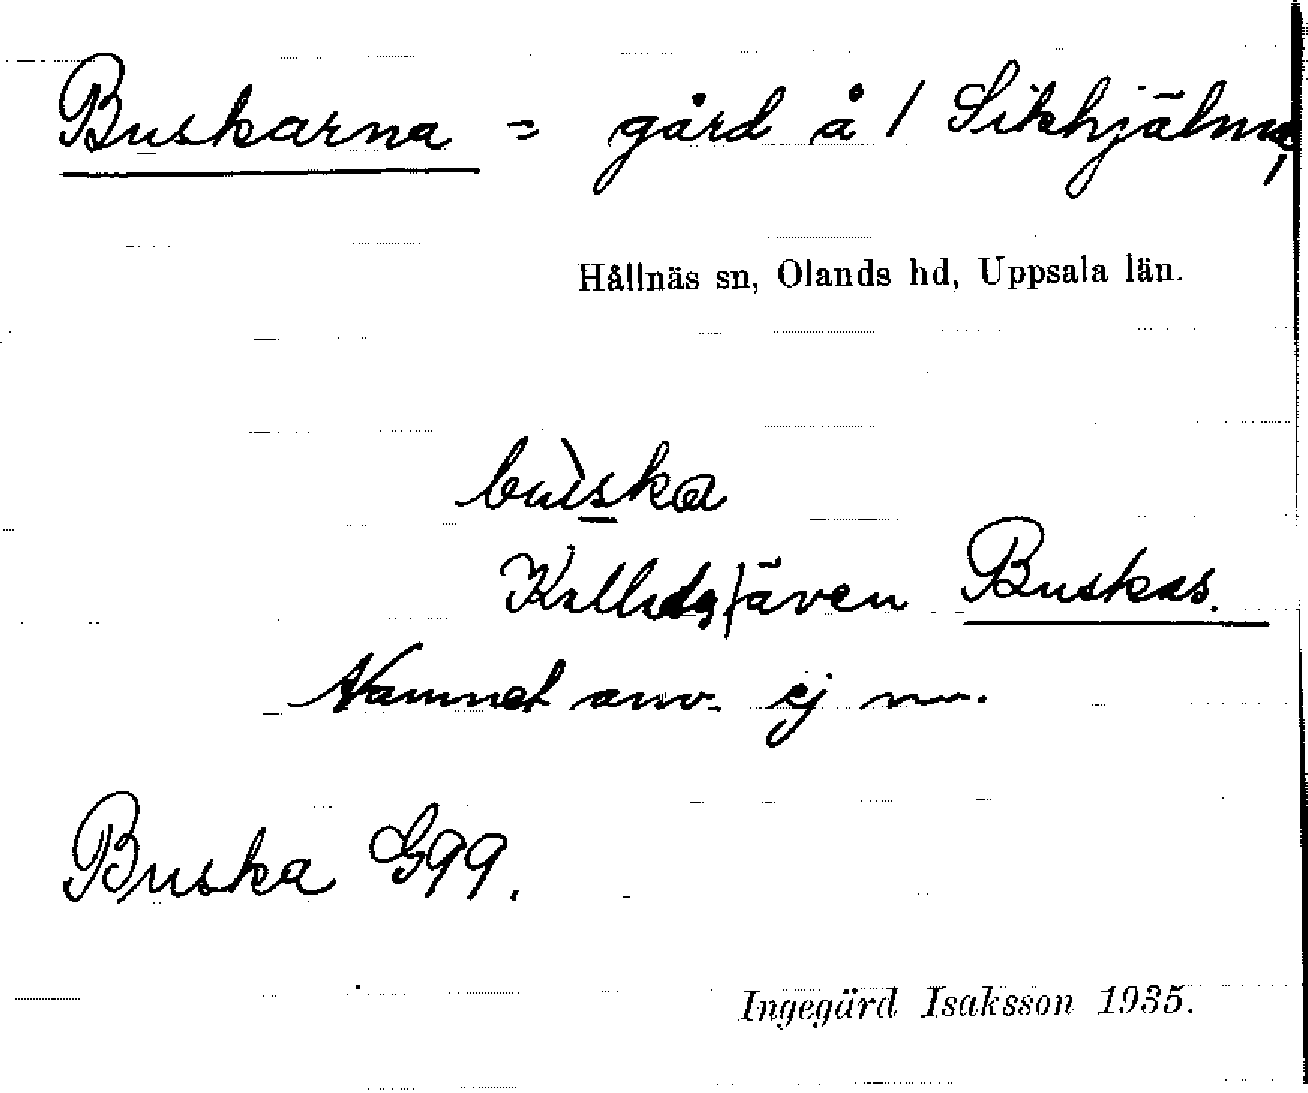 Buskarna = gård å / Sikhjälma,
Hållnäs sn, Olands hd, Uppsala län.
bùska
Kallades även Buskas.
Namnet anv. ej nu.
Buska G99.
Ingegärd Isaksson 1935.